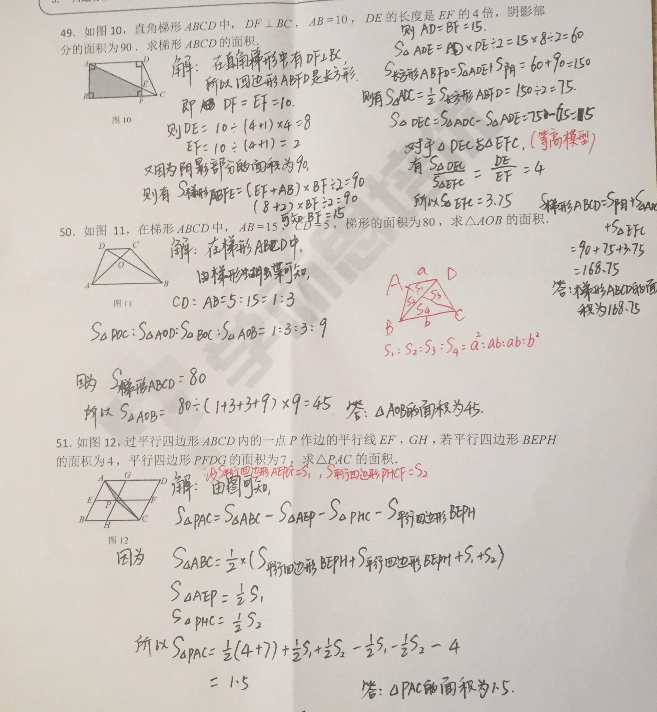 49. 如图 10，直角梯形 ABCD 中， DF⊥BC， AB=10， DE 的长度是 EF 的 4 倍，阴影部
分的面积为90．求梯形ABCD的面积．
解：在直角梯形中有DF⊥BC，
所以四边形ABFD是长方形．
即 DF=EF=10.
则DE=10÷(4+1)×4=8
EF=10÷(4+1)=2
又因为阴影部分的面积为90，
则有 S梯形ABFE=(EF+AB)×BF÷2=90
(8+2)×BF÷2=90
可知BF=15
图10
则AD=BF=15.
S△ADE=AD×DE÷2=15×8÷2=60
S长方形ABFD=S△ADE+S阴=60+90=150
则有S△ADC=½S长方形ABFD=150÷2=75.
S△DEC=S△ADC-S△ADE=75-60=15
对于△DEC与△EFC，(等高模型)
有 S△DEC/S△EFC = DE/EF = 4
所以S△EFC=3.75
S梯形ABCD=S阴+S△ADC
+S△EFC
=90+75+3.75
=168.75
答：梯形ABCD的面
积为168.75
50. 如图 11，在梯形ABCD中， AB=15， CD=5，梯形的面积为80，求△AOB的面积．
解：在梯形ABCD中，
可知，
CD：AB=5：15=1：3
图11
S△DOC：S△AOD：S△BOC：S△AOB=1：3：3：9
a
A D
S1 S2 S3 S4
B b C
S1：S2：S3：S4=a²：ab：ab：b²
因为 S梯形ABCD=80
所以 S△AOB= 80÷(1+3+3+9)×9=45 答：△AOB的面积为45.
51. 如图 12，过平行四边形ABCD内的一点P作边的平行线EF，GH，若平行四边形BEPH
的面积为4，平行四边形PFDG的面积为7，求△PAC的面积．
设S平行四边形AEPG=S1，S平行四边形PHCF=S2
解：由图可知，
S△PAC=S△ABC-S△AEP-S△PHC-S平行四边形BEPH
图12
因为 S△ABC=½×(S平行四边形BEPH+S平行四边形BEPH+S1+S2)
S△AEP=½S1
S△PHC=½S2
所以S△PAC=½(4+7)+½S1+½S2-½S1-½S2-4
=1.5
答：△PAC的面积为1.5.